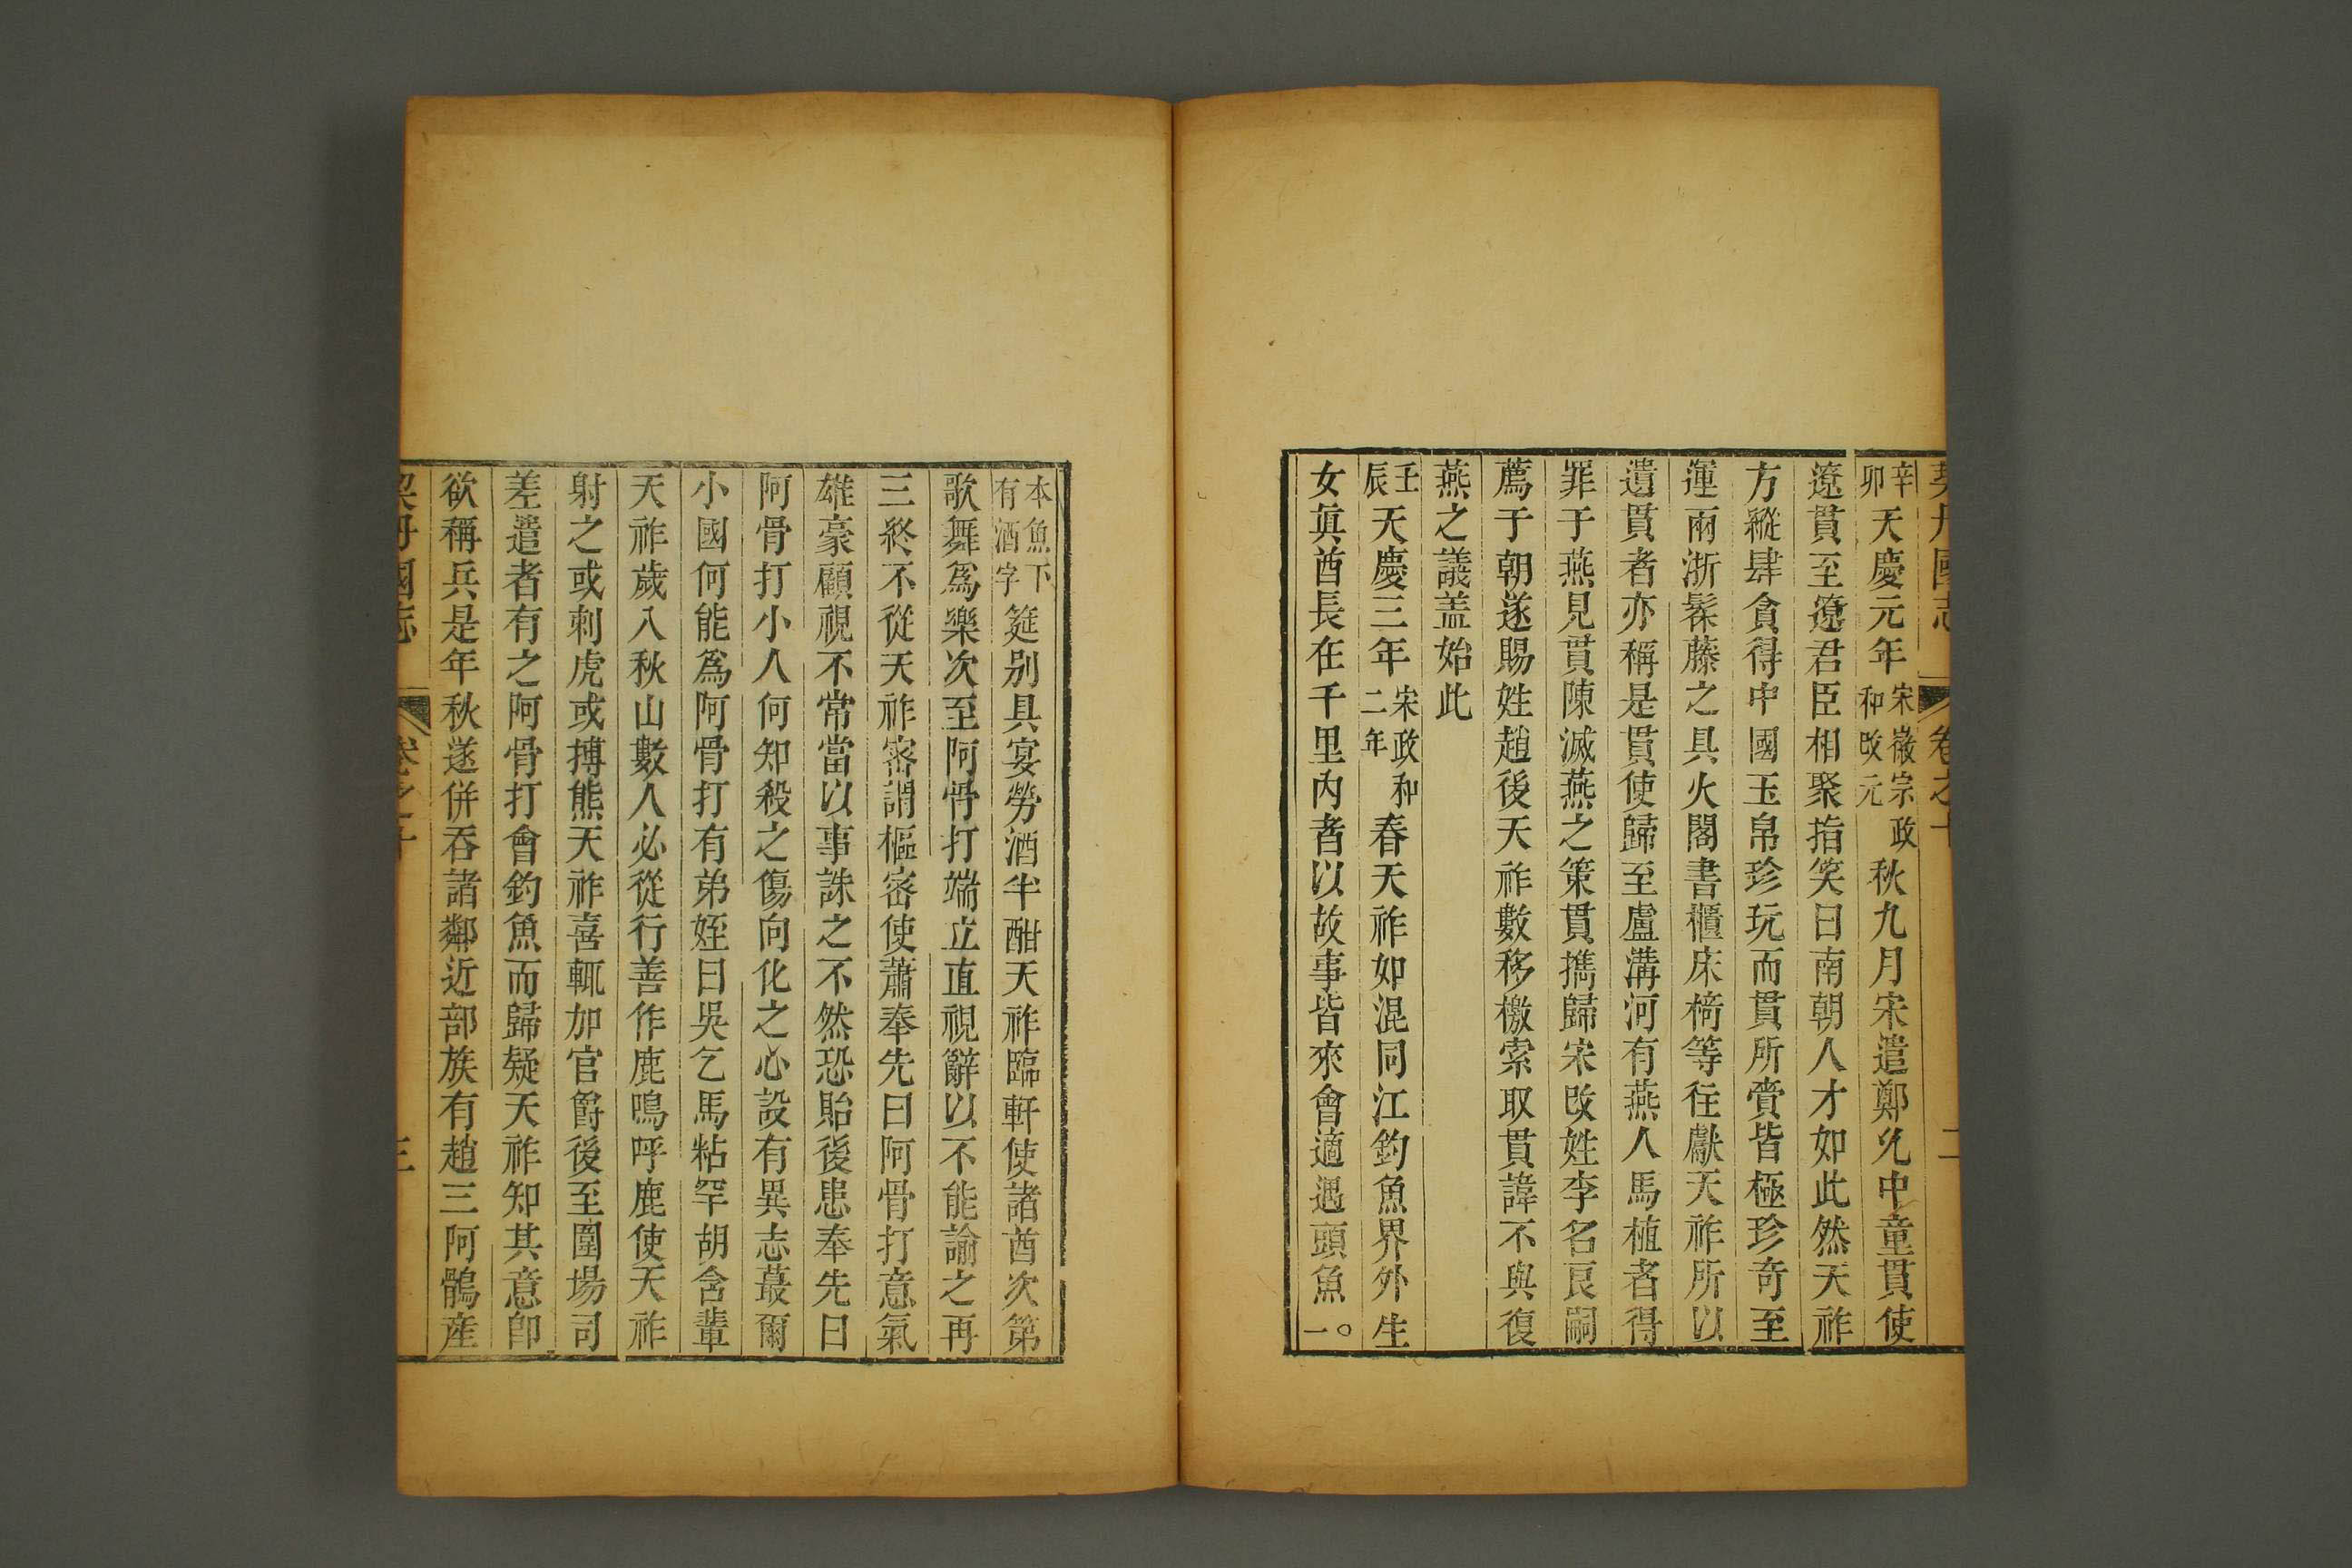 契丹國志 卷之十 二
辛卯天慶元年宋徽宗政和改元秋九月宋遣鄭允中童貫使
遼貫至遼君臣相聚指笑曰南朝人才如此然天祚
方縱肆貪得中國玉帛珍玩而貫所賫皆極珍奇至
運兩浙髹藤之具火閣書櫃床椅等往獻天祚所以
遺貫者亦稱是貫使歸至盧溝河有燕人馬植者得
罪于燕見貫陳滅燕之策貫擕歸宋改姓李名良嗣
薦于朝遂賜姓趙後天祚數移檄索取貫諱不與復
燕之議盖始此
壬辰天慶三年宋政和二年春天祚如混同江鈞魚界外生
女眞酋長在千里內者以故事皆來會適遇頭魚〇一
本魚下有酒字筵别具宴勞酒半酣天祚臨軒使諸酋次第
歌舞爲樂次至阿骨打端立直視辭以不能諭之再
三終不從天祚密謂樞密使蕭奉先曰阿骨打意氣
雄豪顧視不常當以事誅之不然恐貽後患奉先曰
阿骨打小人何知殺之傷向化之心設有異志蕞爾
小國何能爲阿骨打有弟姪曰吳乞馬粘罕胡舍輩
天祚歲入秋山數人必從行善作鹿鳴呼鹿使天祚
射之或刺虎或搏熊天祚喜輒加官爵後至圍場司
差遣者有之阿骨打會釣魚而歸疑天祚知其意卽
欲稱兵是年秋遂併吞諸鄰近部族有趙三阿鶻産
契丹國志 卷之十 三